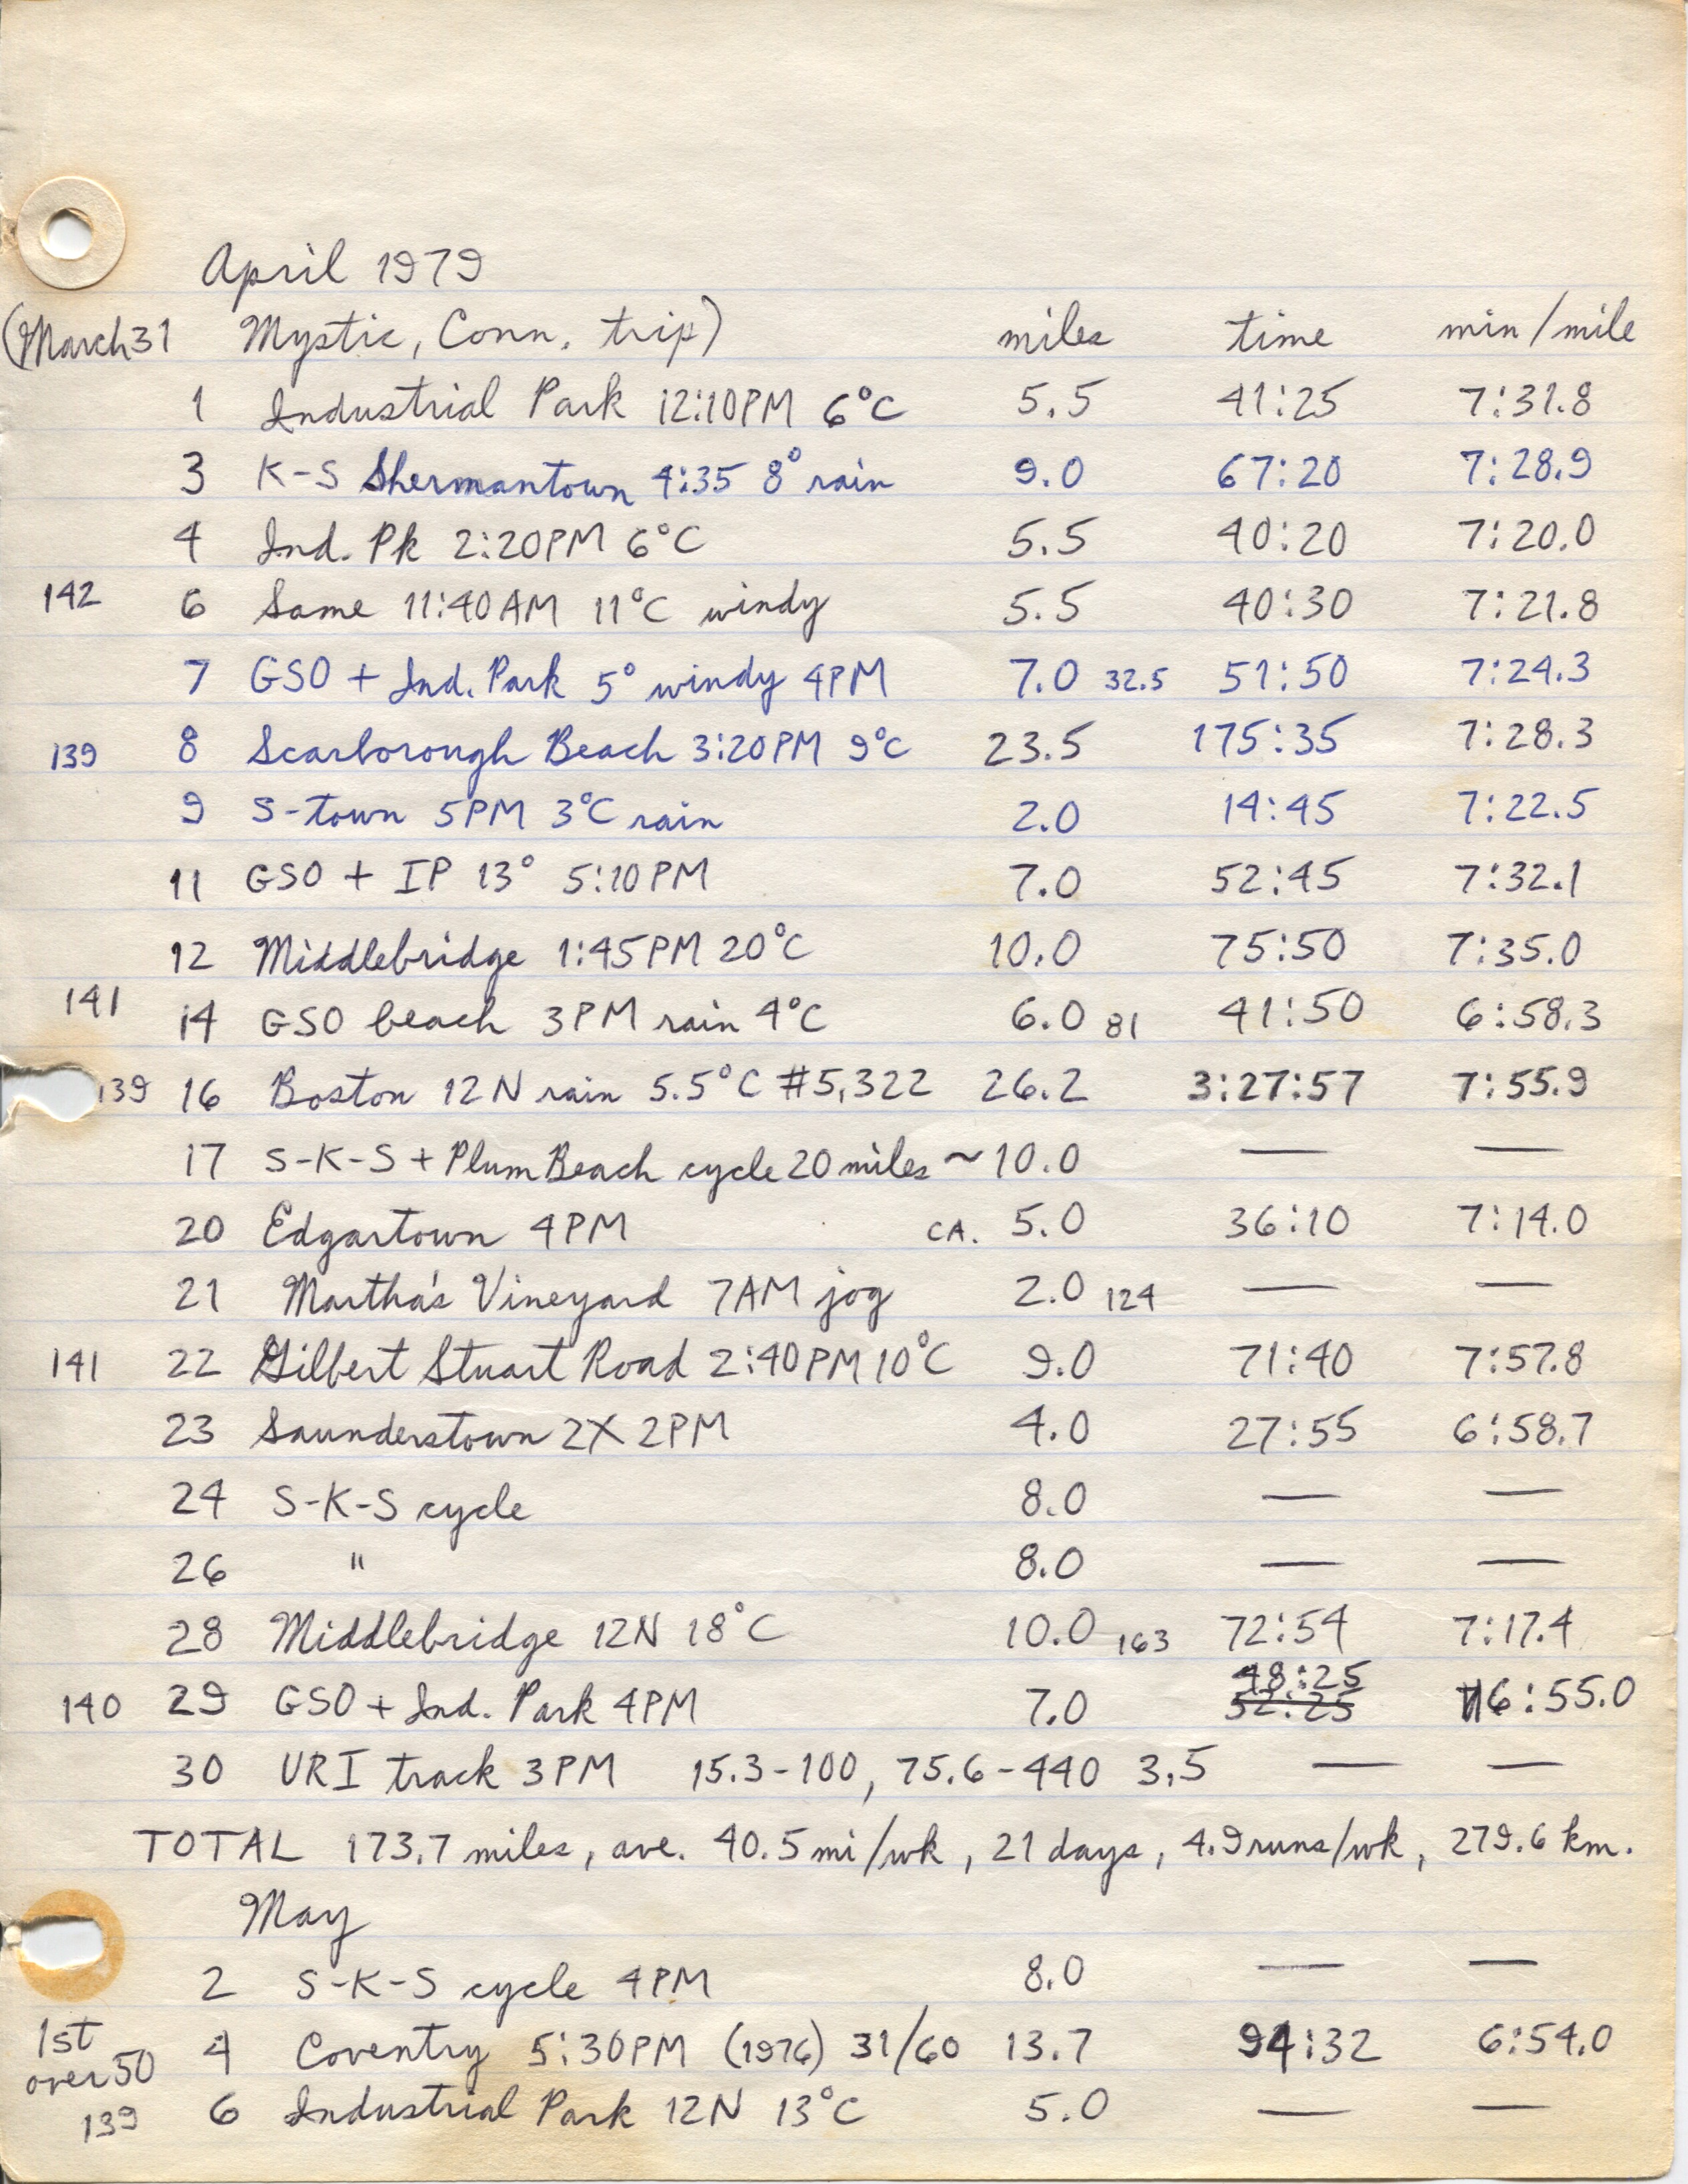 April 1979
(March 31 Mystic, Conn. trip) miles time min/mile
1 Industrial Park 12:10PM 6°C 5.5 41:25 7:31.8
3 K-S Shermantown 4:35 8° rain 9.0 67:20 7:28.9
4 Ind. Pk 2:20PM 6°C 5.5 40:20 7:20.0
142 6 Same 11:40AM 11°C windy 5.5 40:30 7:21.8
7 GSO + Ind. Park 5° windy 4PM 7.0 32.5 51:50 7:24.3
139 8 Scarborough Beach 3:20PM 9°C 23.5 175:35 7:28.3
9 S-town 5PM 3°C rain 2.0 14:45 7:22.5
11 GSO + IP 13° 5:10PM 7.0 52:45 7:32.1
12 Middlebridge 1:45PM 20°C 10.0 75:50 7:35.0
141 14 GSO beach 3PM rain 4°C 6.0 81 41:50 6:58.3
139 16 Boston 12N rain 5.5°C #5,322 26.2 3:27:57 7:55.9
17 S-K-S + Plum Beach cycle 20 miles ~10.0 — —
20 Edgartown 4PM CA. 5.0 36:10 7:14.0
21 Martha's Vineyard 7AM jog 2.0 124 — —
141 22 Gilbert Stuart Road 2:40PM 10°C 9.0 71:40 7:57.8
23 Saunderstown 2X 2PM 4.0 27:55 6:58.7
24 S-K-S cycle 8.0 — —
26 " 8.0 — —
28 Middlebridge 12N 18°C 10.0 163 72:54 7:17.4
140 29 GSO + Ind. Park 4PM 7.0 48:25 52:25 6:55.0
30 URI track 3PM 15.3-100, 75.6-440 3.5 — —
TOTAL 173.7 miles, ave. 40.5 mi/wk, 21 days, 4.9 runs/wk, 279.6 km.
May
2 S-K-S cycle 4PM 8.0 — —
1st over 50 4 Coventry 5:30PM (1976) 31/60 13.7 94:32 6:54.0
139 6 Industrial Park 12N 13°C 5.0 — —